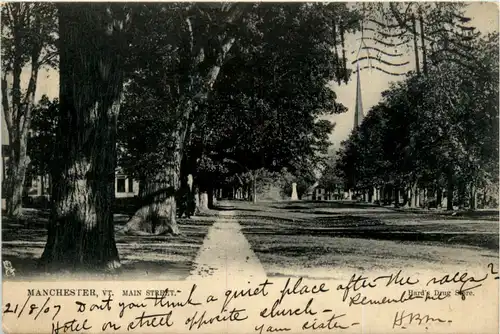 MANCHESTER, VT. MAIN STREET.
Hard's Drug Store.
21/8/07 Don't you think a quiet place after the
Remember me
Hotel on street opposite church -
Yam sister -
HBM.